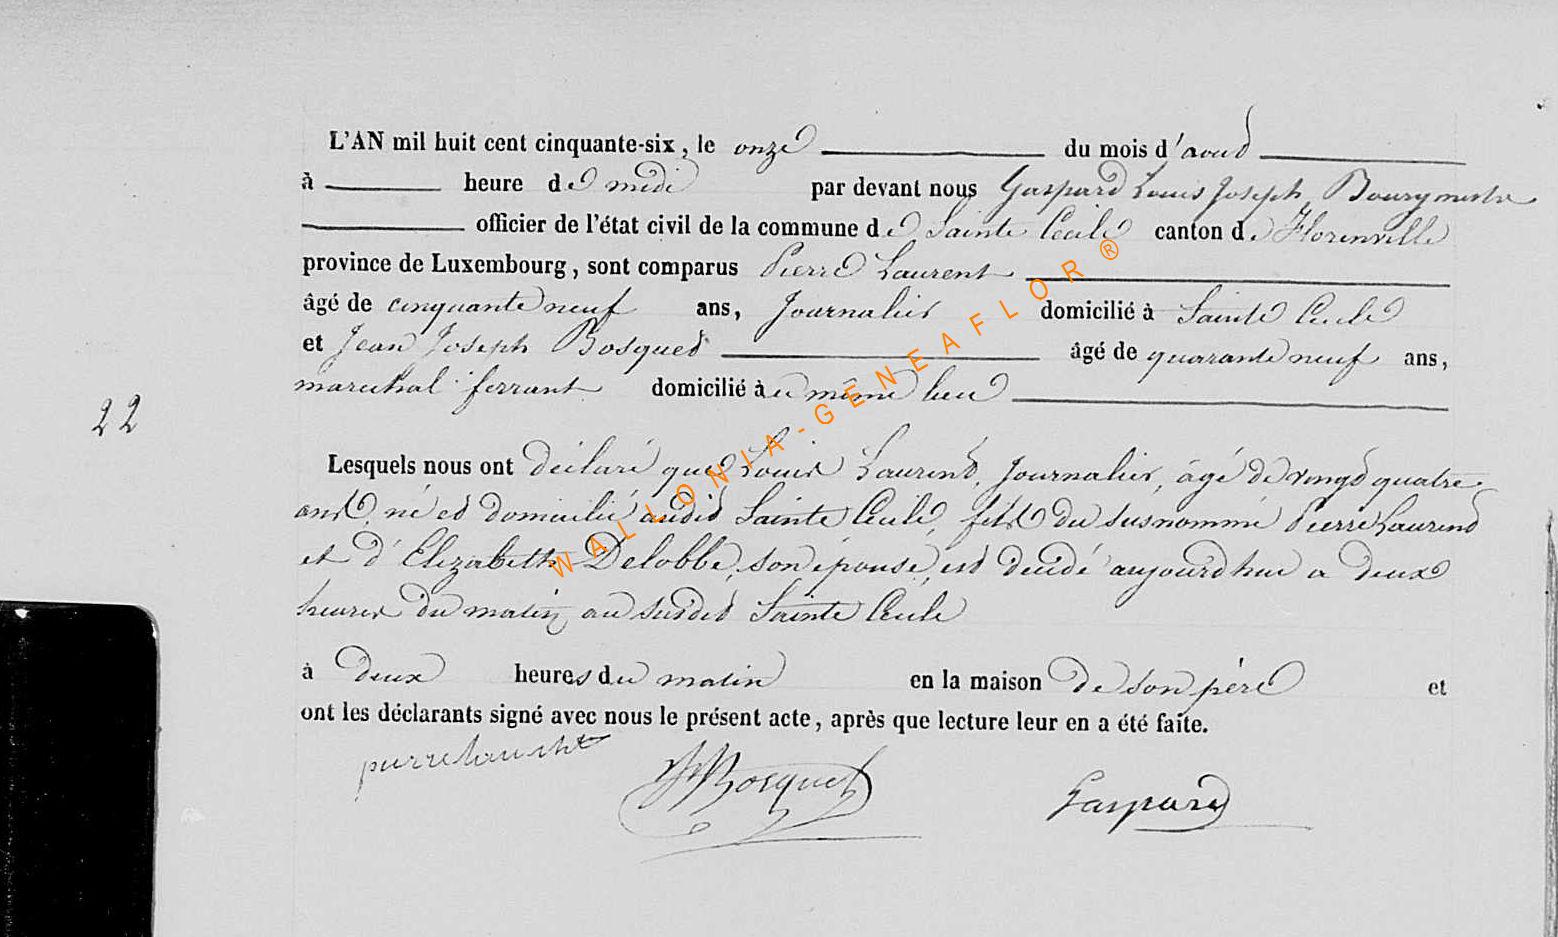 L'AN mil huit cent cinquante-six, le onze du mois d'aout
à heure de midi par devant nous Gaspard Louis Joseph, Bourgmestre
officier de l'état civil de la commune de Sainte Cecile canton de Florenville
province de Luxembourg, sont comparus Pierre Laurent
âgé de cinquante neuf ans, Journalier domicilié à Sainte Cecile
et Jean Joseph Bosquet âgé de quarante neuf ans,
marechal ferrant domicilié au même lieu
22
Lesquels nous ont déclaré que Louis Laurent, Journalier, âgé de vingt quatre
ans, né et domicilié audit Sainte Cecile, fils du susnommé Pierre Laurent
et d'Elizabeth Delobbe, son épouse, est decidé aujourd'hui a deux
heures du matin au susdit Sainte Cecile
à deux heures du matin en la maison de son père et
ont les déclarants signé avec nous le présent acte, après que lecture leur en a été faite.
Bosquet Gaspard
WALLONIA-GENEAFLOR®